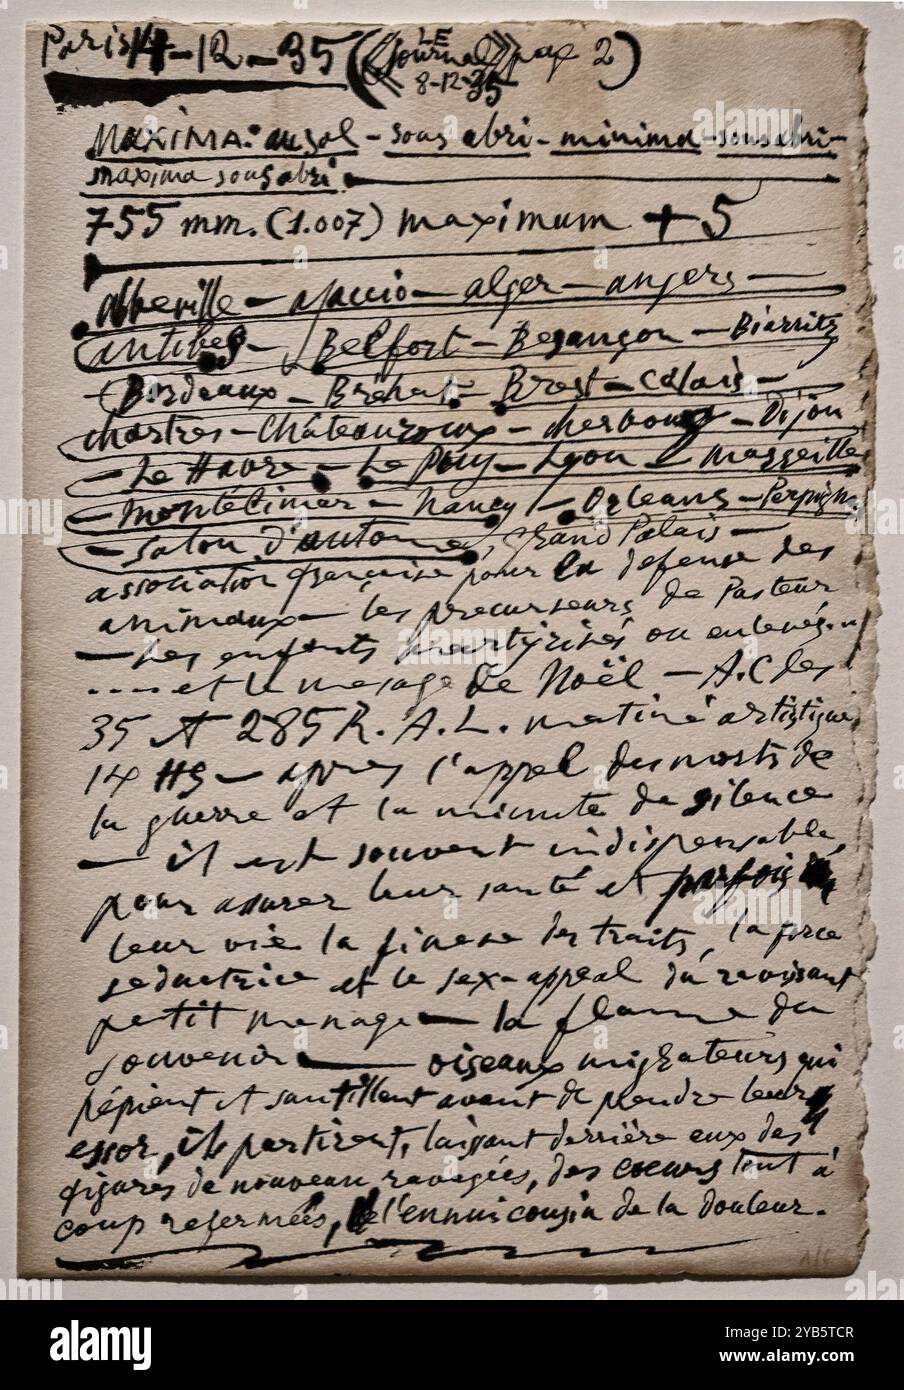 Paris 14-12-35 (《LE Journal》 pag 2)
8-12-35
MAXIMA: au sol - sous abri - minima - sous abri -
maxima sous abri
755 mm. (1.007) maximum + 5
abbeville - ajaccio - alger - angers -
antibes - Belfort - Besançon - Biarritz
Bordeaux - Bréhat - Brest - Calais -
chartres - Châteauroux - cherbourg - Dijon
- Le Havre - Le Puy - Lyon - Marseille
- Montélimar - Nancy - Orleans - Perpign.
- Salon d'automne, grand Palais -
association française pour la défense des
animaux - les precurseurs de Pasteur
- Les enfants martyrisés ou enlevés.
.... et le mesage de Noël - A.C des
35 et 285 R. A. L. matiné artistique
14 HS - apres l'appel des morts de
la guerre et la minute de silence
- il est souvent indispensable,
pour assurer leur santé et parfois
leur vie la finesse des traits, la force
seductrice et le sex-appeal du ravissant
petit menage - la flamme du
souvenir - oiseaux migrateurs qui
pépient et sautillent avant de prendre leur
essor, ils partirent, laissant derrière eux des
figures de nouveau ravagées, des cœurs tout à
coup refermés, l'ennui cousin de la douleur.
1/6
alamy
Image ID: 2YB5TCR
www.alamy.com